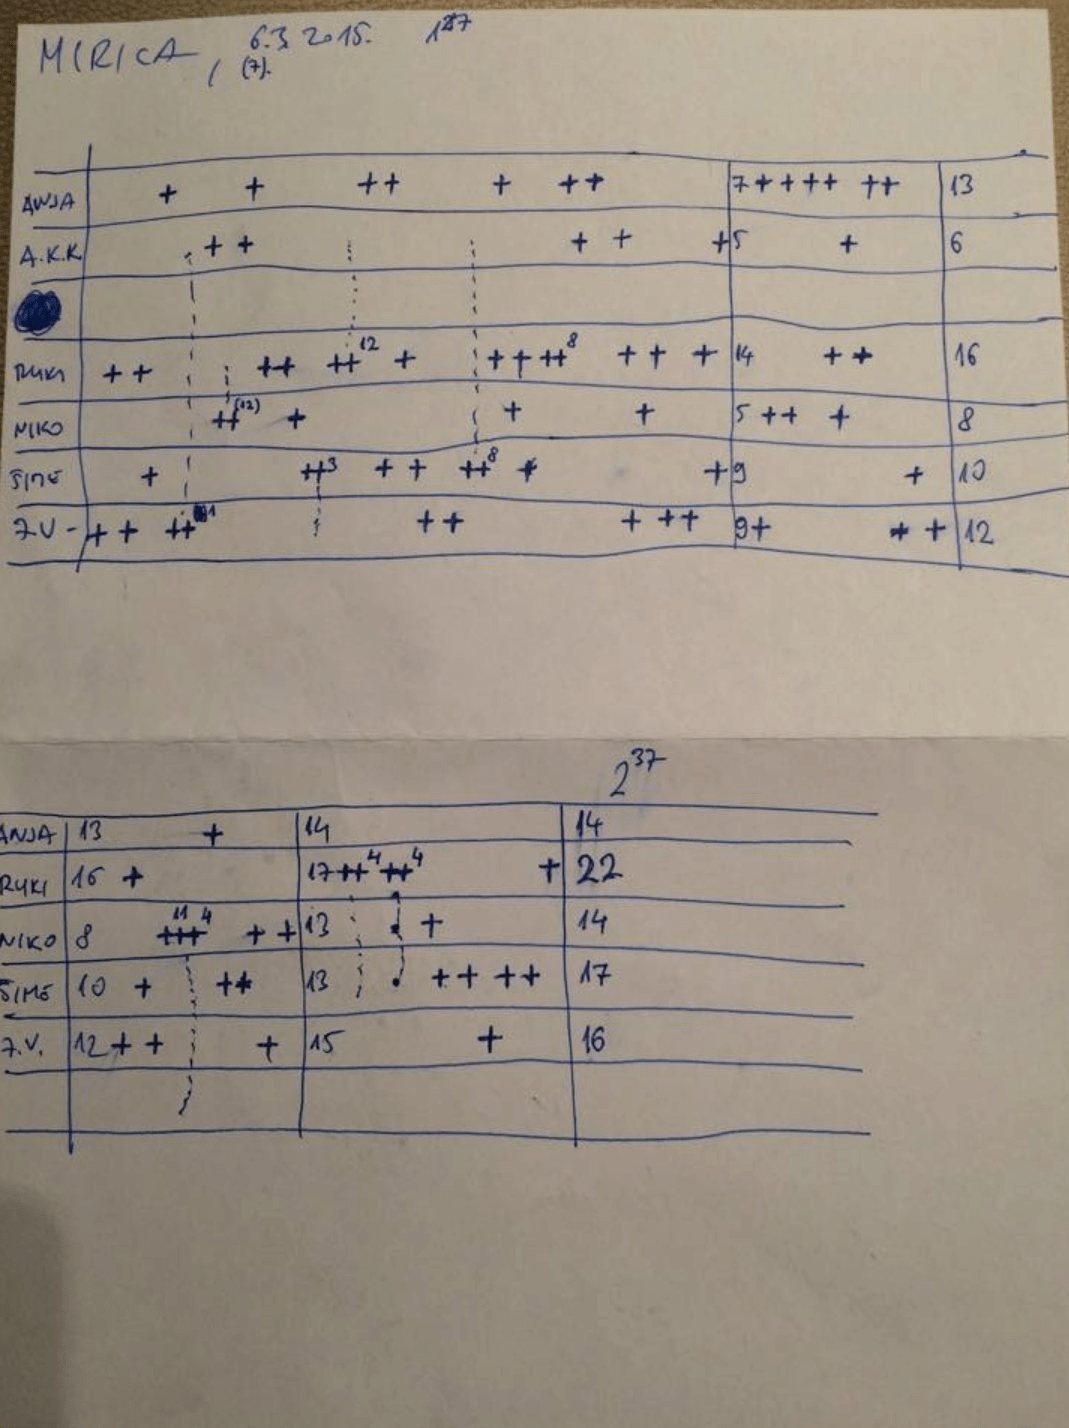 MIRICA, 6.3.2015. 1 27
(7).
ANJA + + ++ + ++ 7++++ ++ 13
A.K.K ++ + + +5 + 6
RUKI ++ ++ ++12 + ++++8 ++ + 14 ++ 16
NIKO ++(12) + + + 5 ++ + 8
ŠIME + ++3 ++ ++8 + +9 + 10
Z.V - ++ ++1 ++ + ++ 9+ + + 12
2 37
ANJA 13 + 14 14
RUKI 16 + 17++4++4 + 22
NIKO 8 +++ 11 4 ++ 13 + 14
ŠIME 10 + ++ 13 ++ ++ 17
Z.V. 12++ + 15 + 16